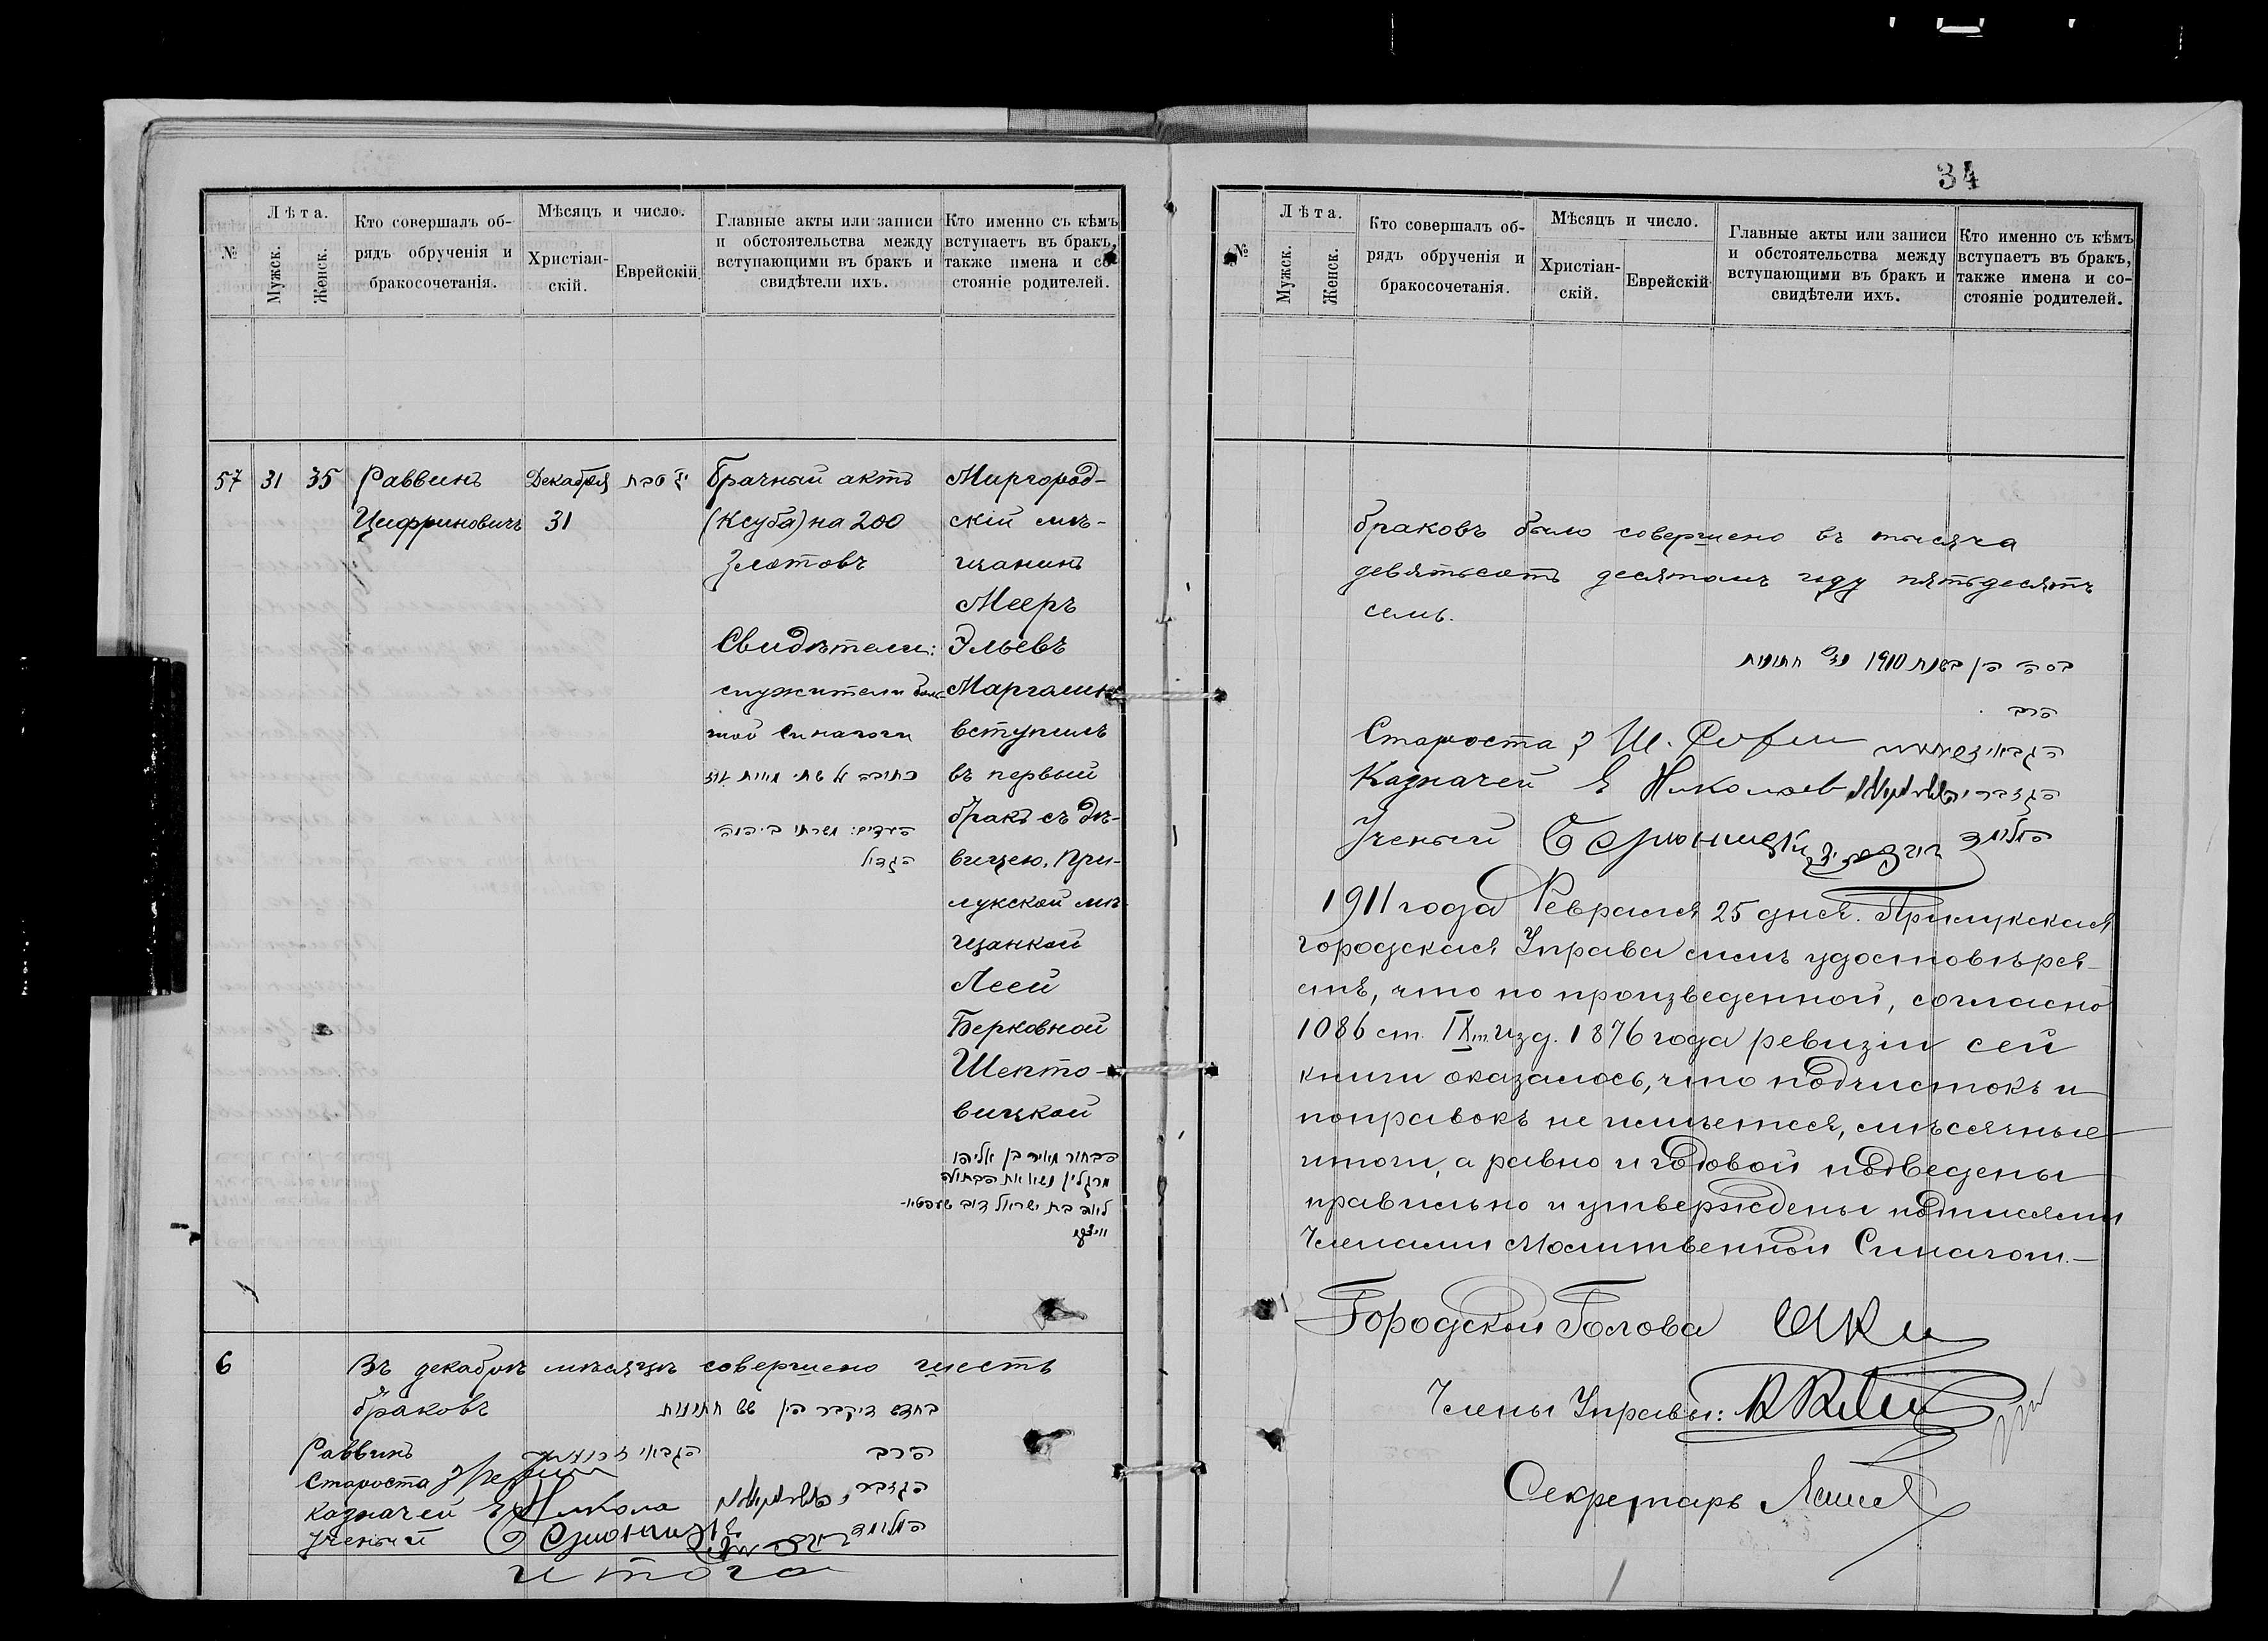 34
№
Лѣта.
Мужск.
Женск.
Кто совершалъ об-
рядъ обрученія и
бракосочетанія.
Мѣсяцъ и число.
Христіан-
скій.
Еврейскій.
Главные акты или записи
и обстоятельства между
вступающими въ бракъ и
свидѣтели ихъ.
Кто именно съ кѣмъ
вступаетъ въ бракъ,
также имена и со-
стояніе родителей.
57
31
35
Раввинъ
Цифриновичъ
Декабря
31
טבת
Брачный актъ
(Ксуба) на 200
Злотовъ
Свидѣтели:
служители боль-
шой Синагоги
כתובה על שתי מאות זוז
העדים: משרתי ביהמד
הגדול
Миргород-
скій мѣ-
щанинъ
Мееръ
Эльевъ
Марголин
вступилъ
въ первый
бракъ съ дѣ-
вицею, При-
лукской мѣ-
щанкой
Леей
Берковной
Шепто-
вицкой
הבחור מאיר בן אליהו
מרגלין נשא את הבתולה
לאה בת ישראל דוב שעפטא-
וויצקי
6
Въ декабрѣ мѣсяцѣ совершено шесть
браковъ
בחדש דיקבר היו שש חתונות
Раввинъ
הרב
הגבאי
Староста
Казначей
הגזבר
Ученый
המלומד
итого
№
Лѣта.
Мужск.
Женск.
Кто совершалъ об-
рядъ обрученія и
бракосочетанія.
Мѣсяцъ и число.
Христіан-
скій.
Еврейскій
Главные акты или записи
и обстоятельства между
вступающими въ бракъ и
свидѣтели ихъ.
Кто именно съ кѣмъ
вступаетъ въ бракъ,
также имена и со-
стояніе родителей.
браковъ было совершено въ тысяча
девятьсотъ десятомъ году пятьдесятъ
семь.
בסה היו בשנת 1910 נז חתונות
הרב
Староста Ш.
הגבאי
Казначей Е Николаев
הגזבר
Ученый
המלומד
1911 года Февраля 25 дня. Прилукская
городская Управа симъ удостовѣря-
етъ, что по произведенной, согласно
1086 ст. IX т. изд. 1876 года ревизіи сей
книги оказалось, что подчистокъ и
поправокъ не имѣется, мѣсячные
итоги, а равно и годовой подведены
правильно и утверждены подписями
Членами Молитвенной Синагоги.-
Городской Голова
Члены Управы:
Секретарь